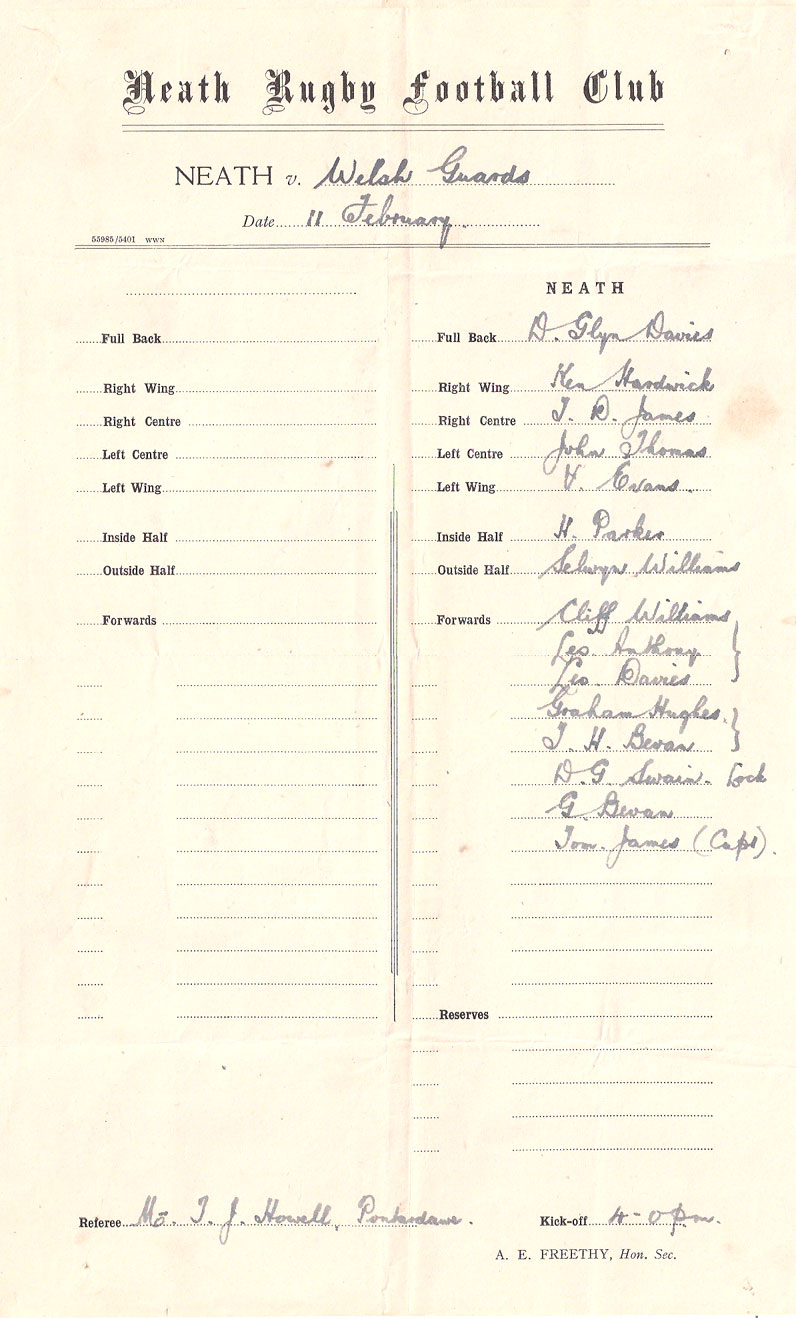 Neath Rugby Football Club
NEATH v. Welsh Guards
Date 11 February.
55985/5401 WWN
Full Back
Right Wing
Right Centre
Left Centre
Left Wing
Inside Half
Outside Half
Forwards
NEATH
Full Back D. Glyn Davies
Right Wing Ken Hardwick
Right Centre T. D. James
Left Centre John Thomas
Left Wing V. Evans.
Inside Half H. Parker
Outside Half Selwyn Williams
Forwards Cliff Williams
Les. Anthony
Les. Davies
Graham Hughes.
T. H. Bevan
D. G Swain - Lock
G. Bevan
Tom. James (Capt).
Reserves
Referee Mr. T. J. Howell, Pontardawe.
Kick-off 4-0 pm.
A. E. FREETHY, Hon. Sec.